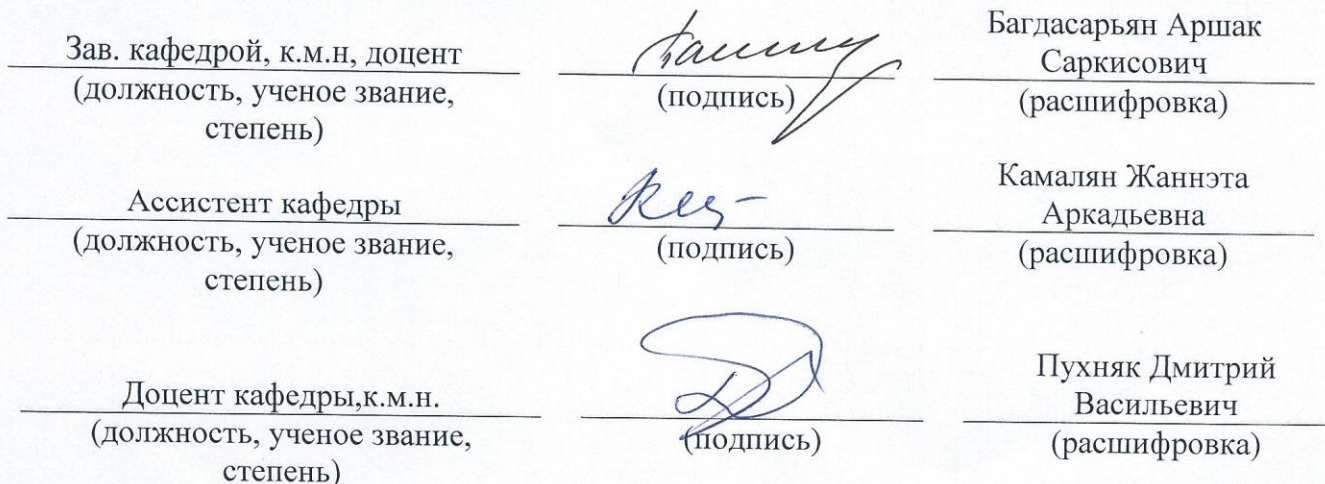 Зав. кафедрой, к.м.н, доцент
(должность, ученое звание,
степень)
(подпись)
Багдасарьян Аршак
Саркисович
(расшифровка)
Ассистент кафедры
(должность, ученое звание,
степень)
(подпись)
Камалян Жаннэта
Аркадьевна
(расшифровка)
Доцент кафедры,к.м.н.
(должность, ученое звание,
степень)
(подпись)
Пухняк Дмитрий
Васильевич
(расшифровка)